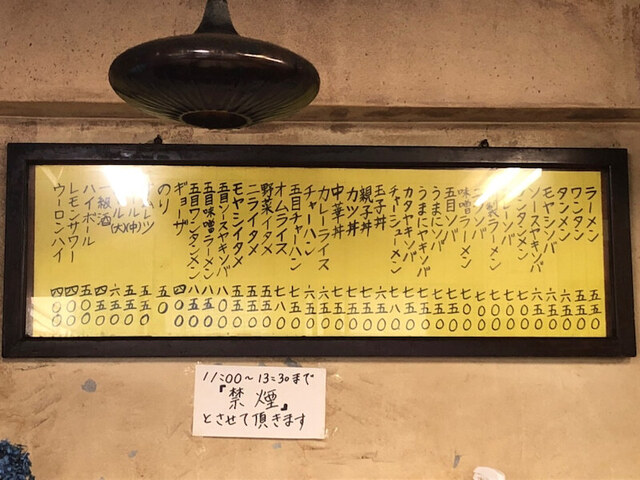 ラーメン 五五〇
ワンタン 五五〇
タンメン 六五〇
モヤシソバ 六五〇
ソースヤキソバ 六五〇
ワンタンメン 七〇〇
ーソバ 七〇〇
製ラーメン 七〇〇
ソバ 七〇〇
味噌ラーメン 七〇〇
五目ソバ 七五〇
うまにソバ 七五〇
うまにヤキソバ 七五〇
カタヤキソバ 七五〇
チャーシューメン 七八〇
玉子丼 六五〇
親子丼 七五〇
カツ丼 七五〇
中華丼 七五〇
カレーライス 六五〇
チャーハン 六五〇
五目チャーハン 七八〇
オムライス 七五〇
野菜イタメ 五五〇
ニライタメ 五五〇
モヤシイタメ 五五〇
五目ソースヤキソバ 八〇〇
五目味噌ラーメン 八五〇
五目ワンタンメン 八五〇
ギョーザ 四〇〇
のり 五〇
オムレツ 五五〇
ール(中) 五五〇
ル(大) 六五〇
一級酒 四五〇
ハイボール 五〇〇
レモンサワー 四〇〇
ウーロンハイ 四〇〇
11:00〜13:30まで
『禁煙』
とさせて頂きます